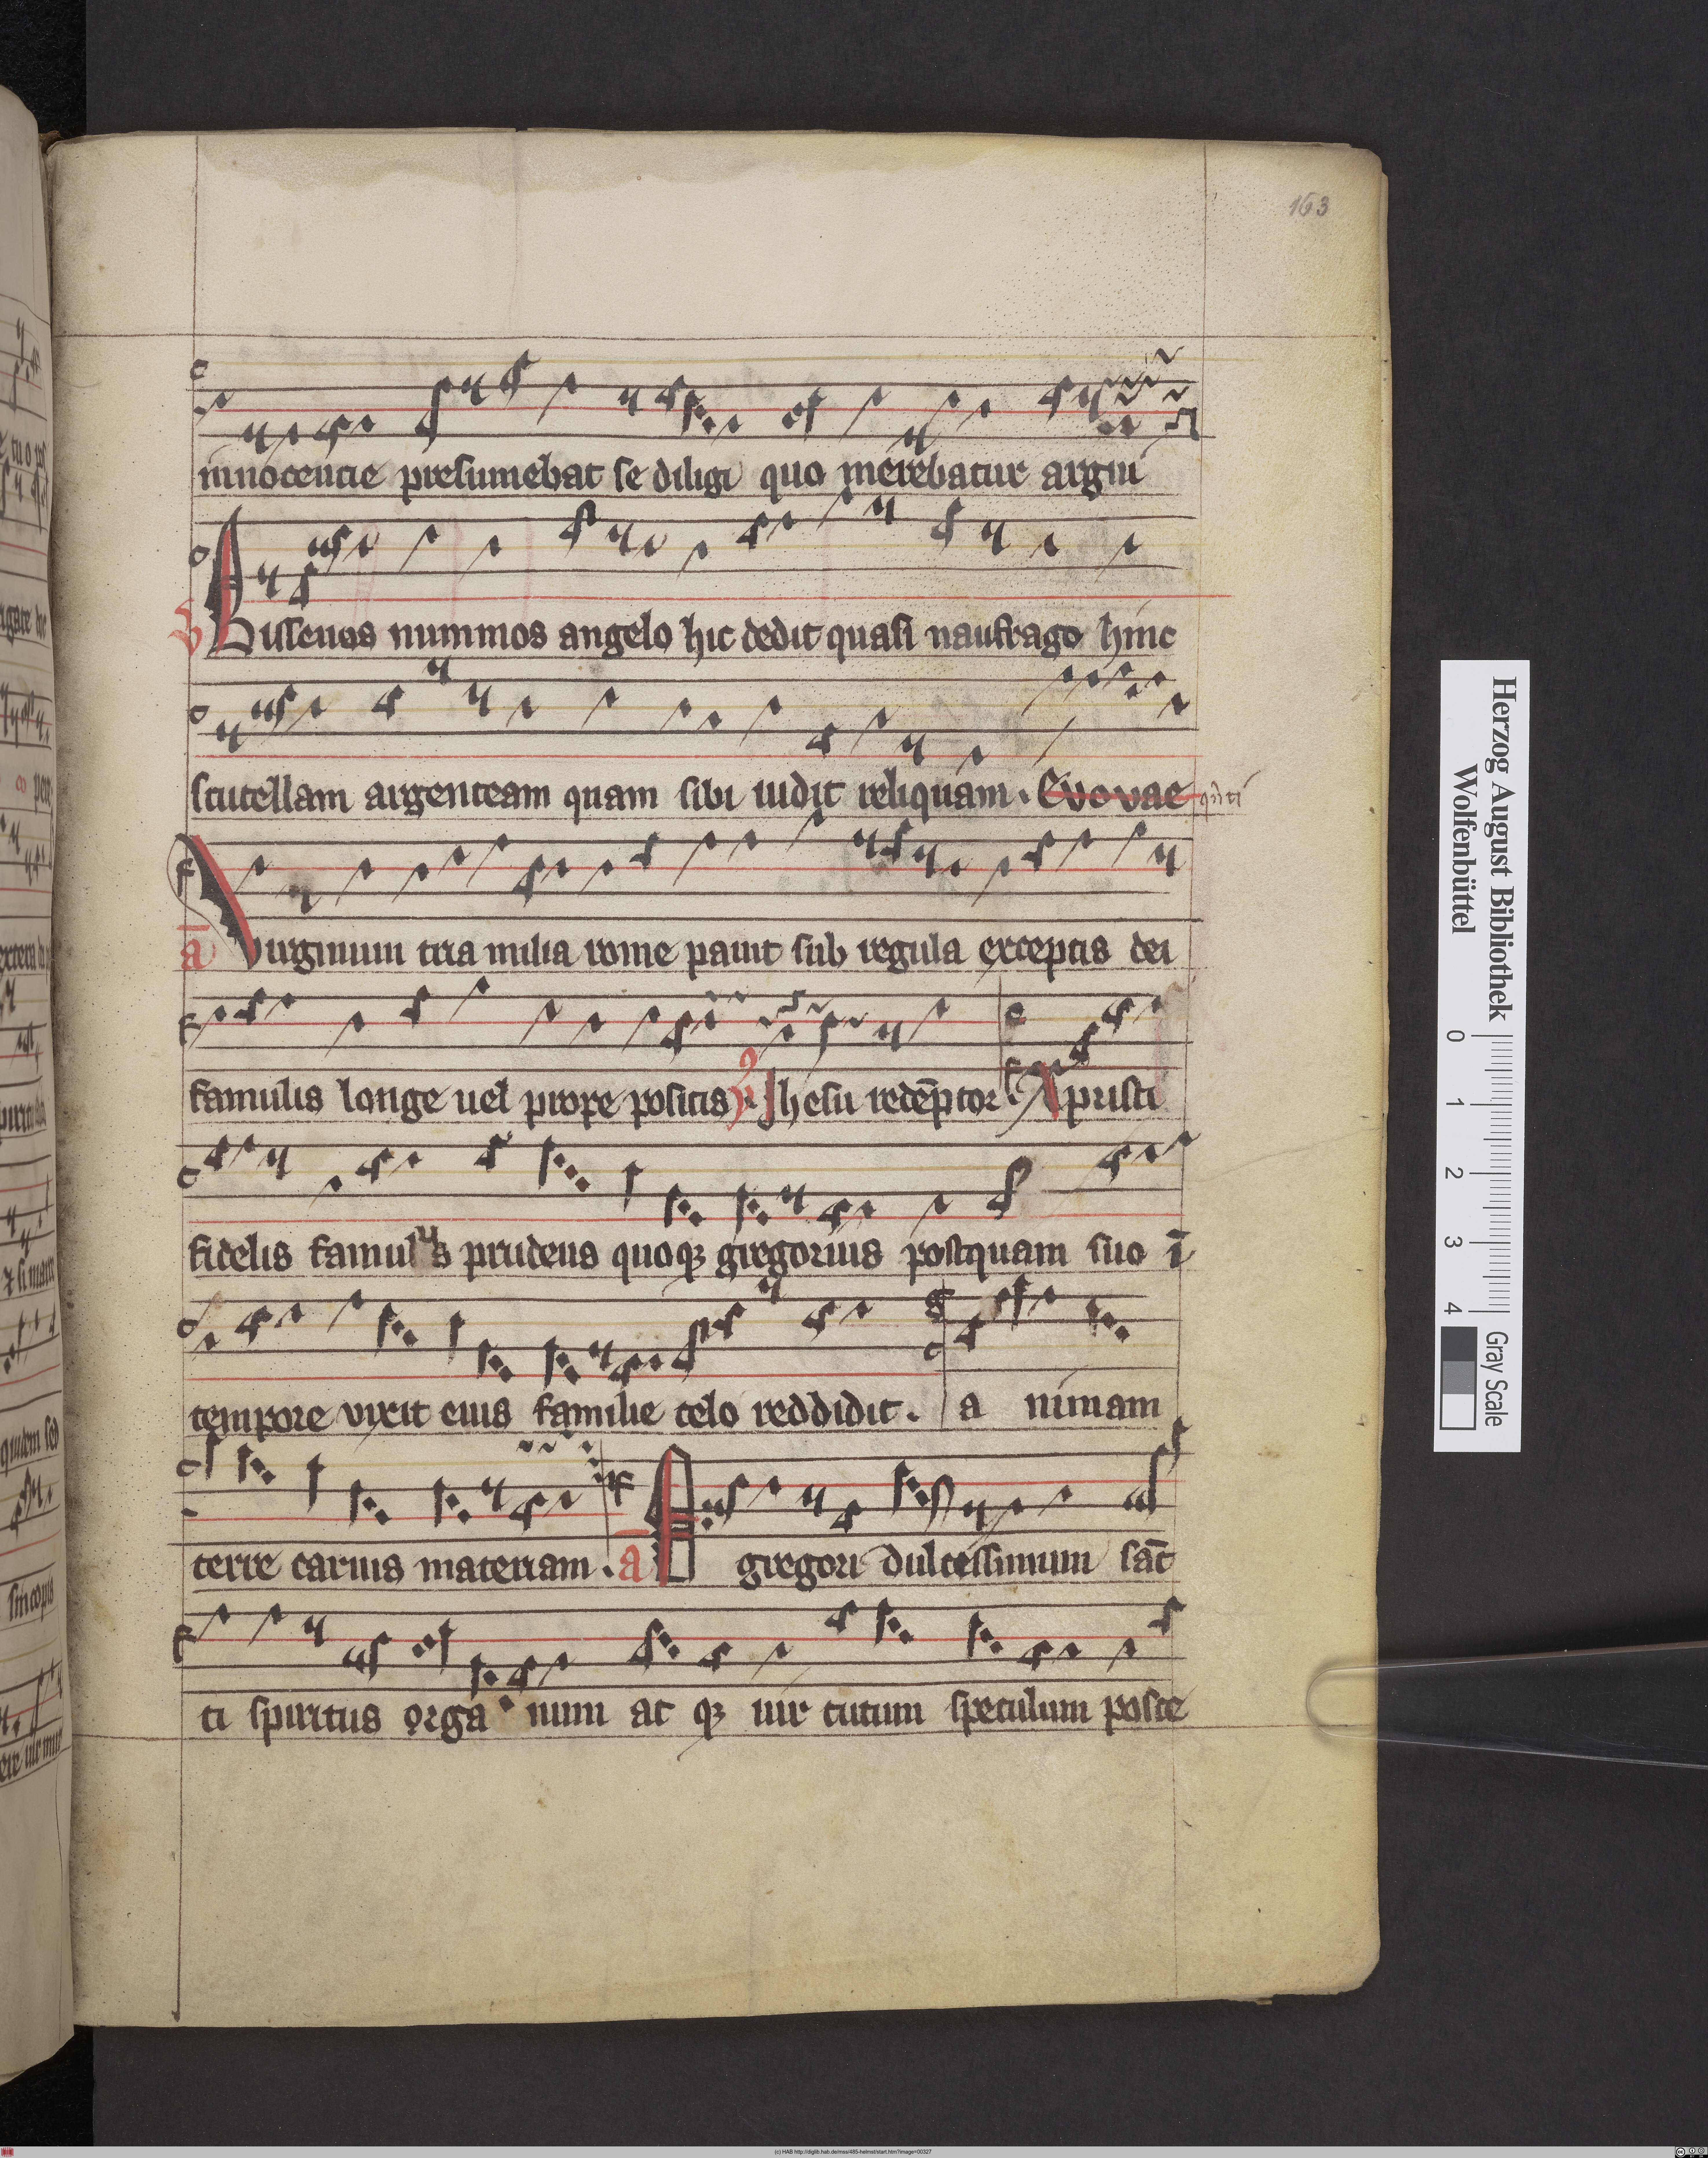 163
innocencie presumebat se diligi quo merebatur argui
Bissenos nummos angelo hic dedit quasi naufrago hinc
scutellam argenteam quam sibi iudit reliquam. Evovae
ā Virginum tria milia rome pauit sub regula exceptis dei
famulis longe uel prope positis Jhesu redēptor Xpristi
fidelis famulus prudens quoqꝫ gregorius postquam suo ī
tempore vixit eius familie celo reddidit. a nimam
terre carius materiam. ā O gregori dulcessimum sāc
ti spiritus orga num ac qꝫ uir tutum speculum posce
Herzog August Bibliothek
Wolfenbüttel
0 1 2 3 4
Gray Scale
(c) HAB http://diglib.hab.de/mss/485-helmst/start.htm?image=00327